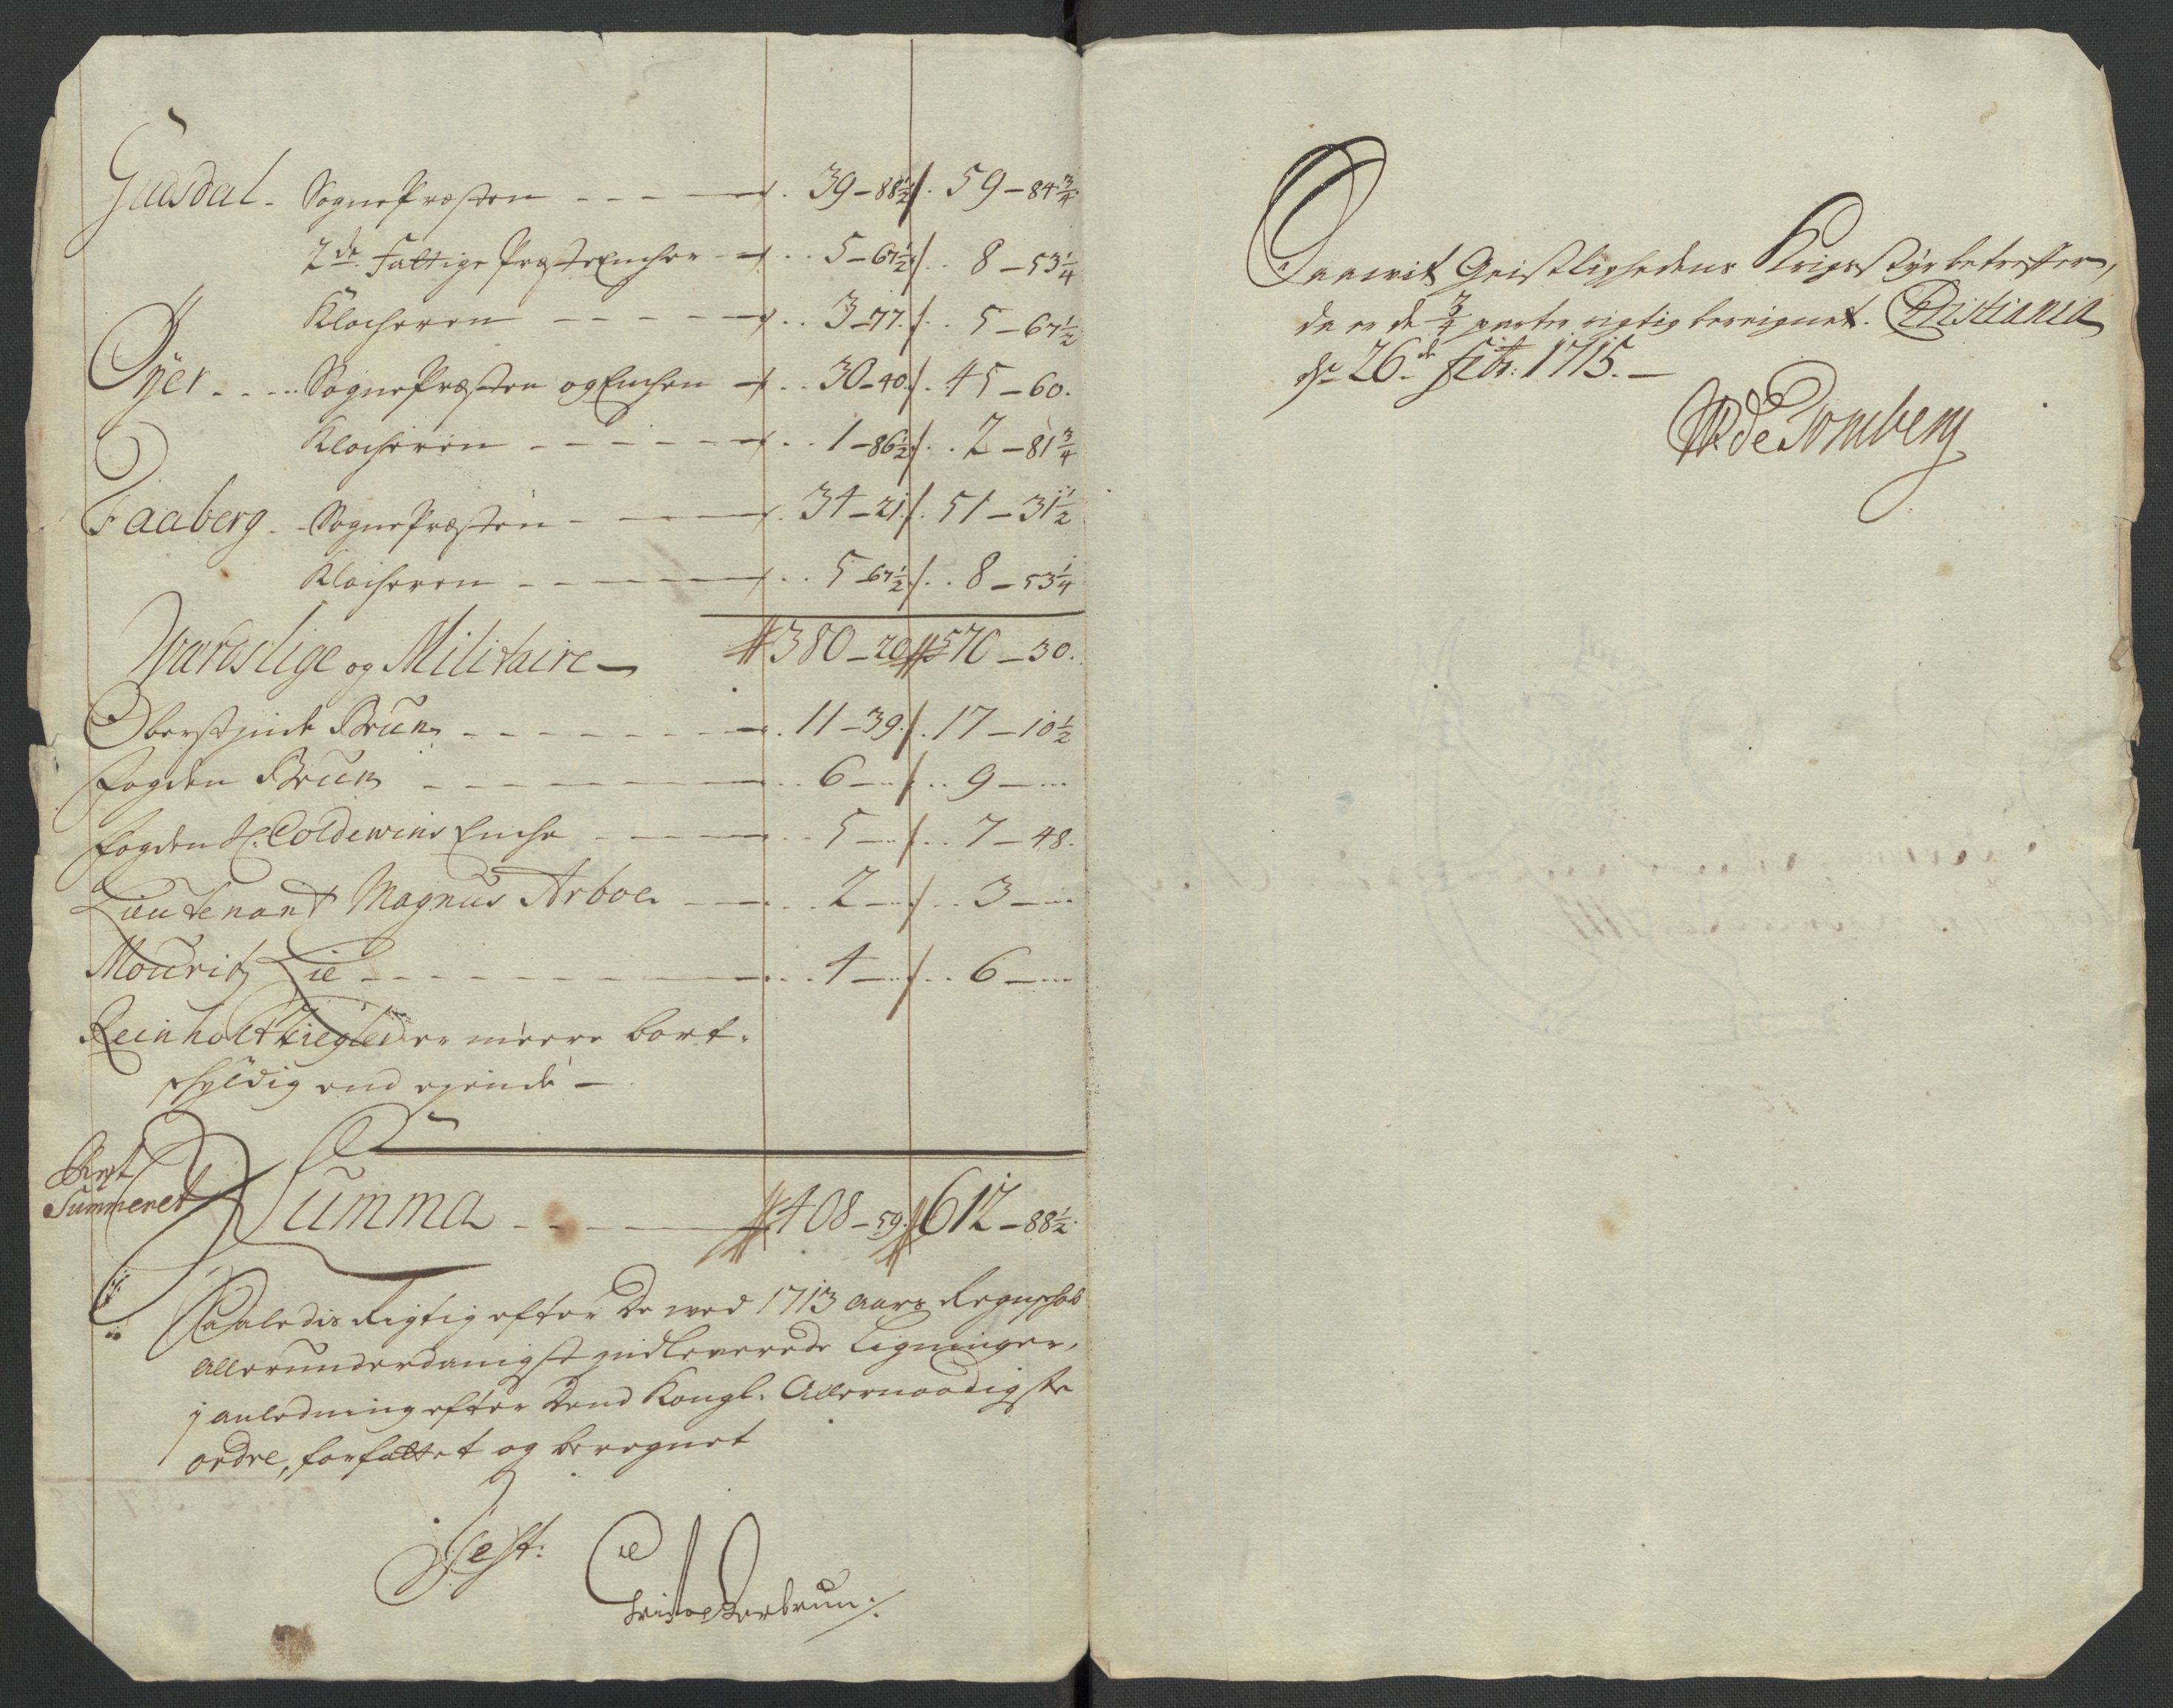 Gusdal - SognePræsten - - - 39-88½ / 59-84¾
2de Fattige PræsteEncher - 5-67½ / 8-53¼
Klocheren - - - 3-77 / 5-67½
Öyer - - - SognePræsten og Enchen - 30-40 / 45-60
Klocheren - - - 1-86½ / 2-81¾
Faaberg - SognePræsten - - - 34-21 / 51-31½
Klocheren - - - 5-67½ / 8-53¼
Værdslige og Militaire - 380-20 570-30
Oberstinde Brun - - - 11-39 / 17-10½
Fogden Brun - - - 6 / 9
Fogden Sl. Coldewins Enche - - - 5 / 7-48
Lieutenant Magnus Arboe - - - 2 / 3
Mouritz Lie - - - 4 / 6
Reinholt Ziegler er meere bort-
schyldig end ejende -
Summeret
Summa - - - 408-59 612-88½
Saaledis Rigtig efter de ved 1713 aars Regnschab
allerunderdanigst indleverede Ligninger,
j anledning efter dend Kongl. Allernaadigste
ordre, forfattet og beregnet
Test:
Saavit Geistlighedens Krigsstyr betreffer,
da er de ¾ parter rigtig beregnet. Christiania
26de Feb: 1715.
de Tonsberg